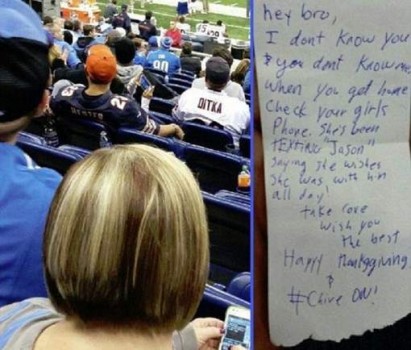 20
HESTER
23
DITKA
hey bro,
I dont know you
& you dont know me
when you get home
check your girls
Phone. She's been
tEXTING "Jason"
saying she wishes
she was with him
all day!
take care
wish you
the best
Happy thanksgiving
&
#Chive ON!